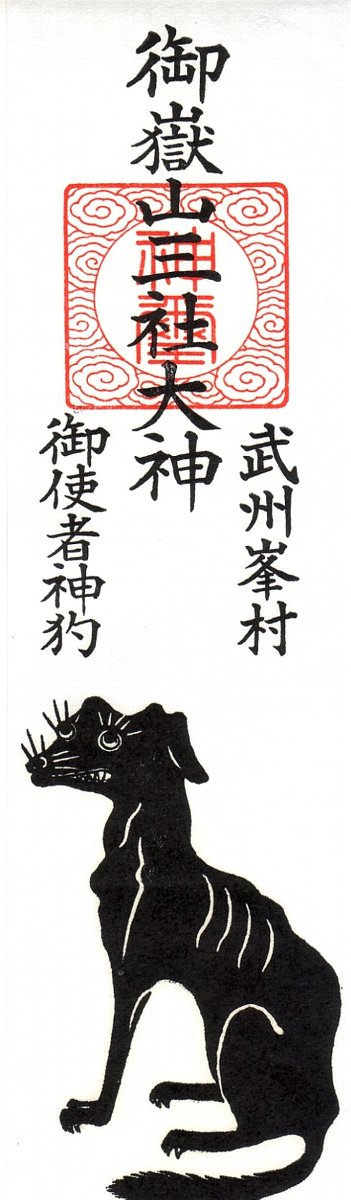 武州峯村
御嶽山三社大神
御使者神犳
神璽